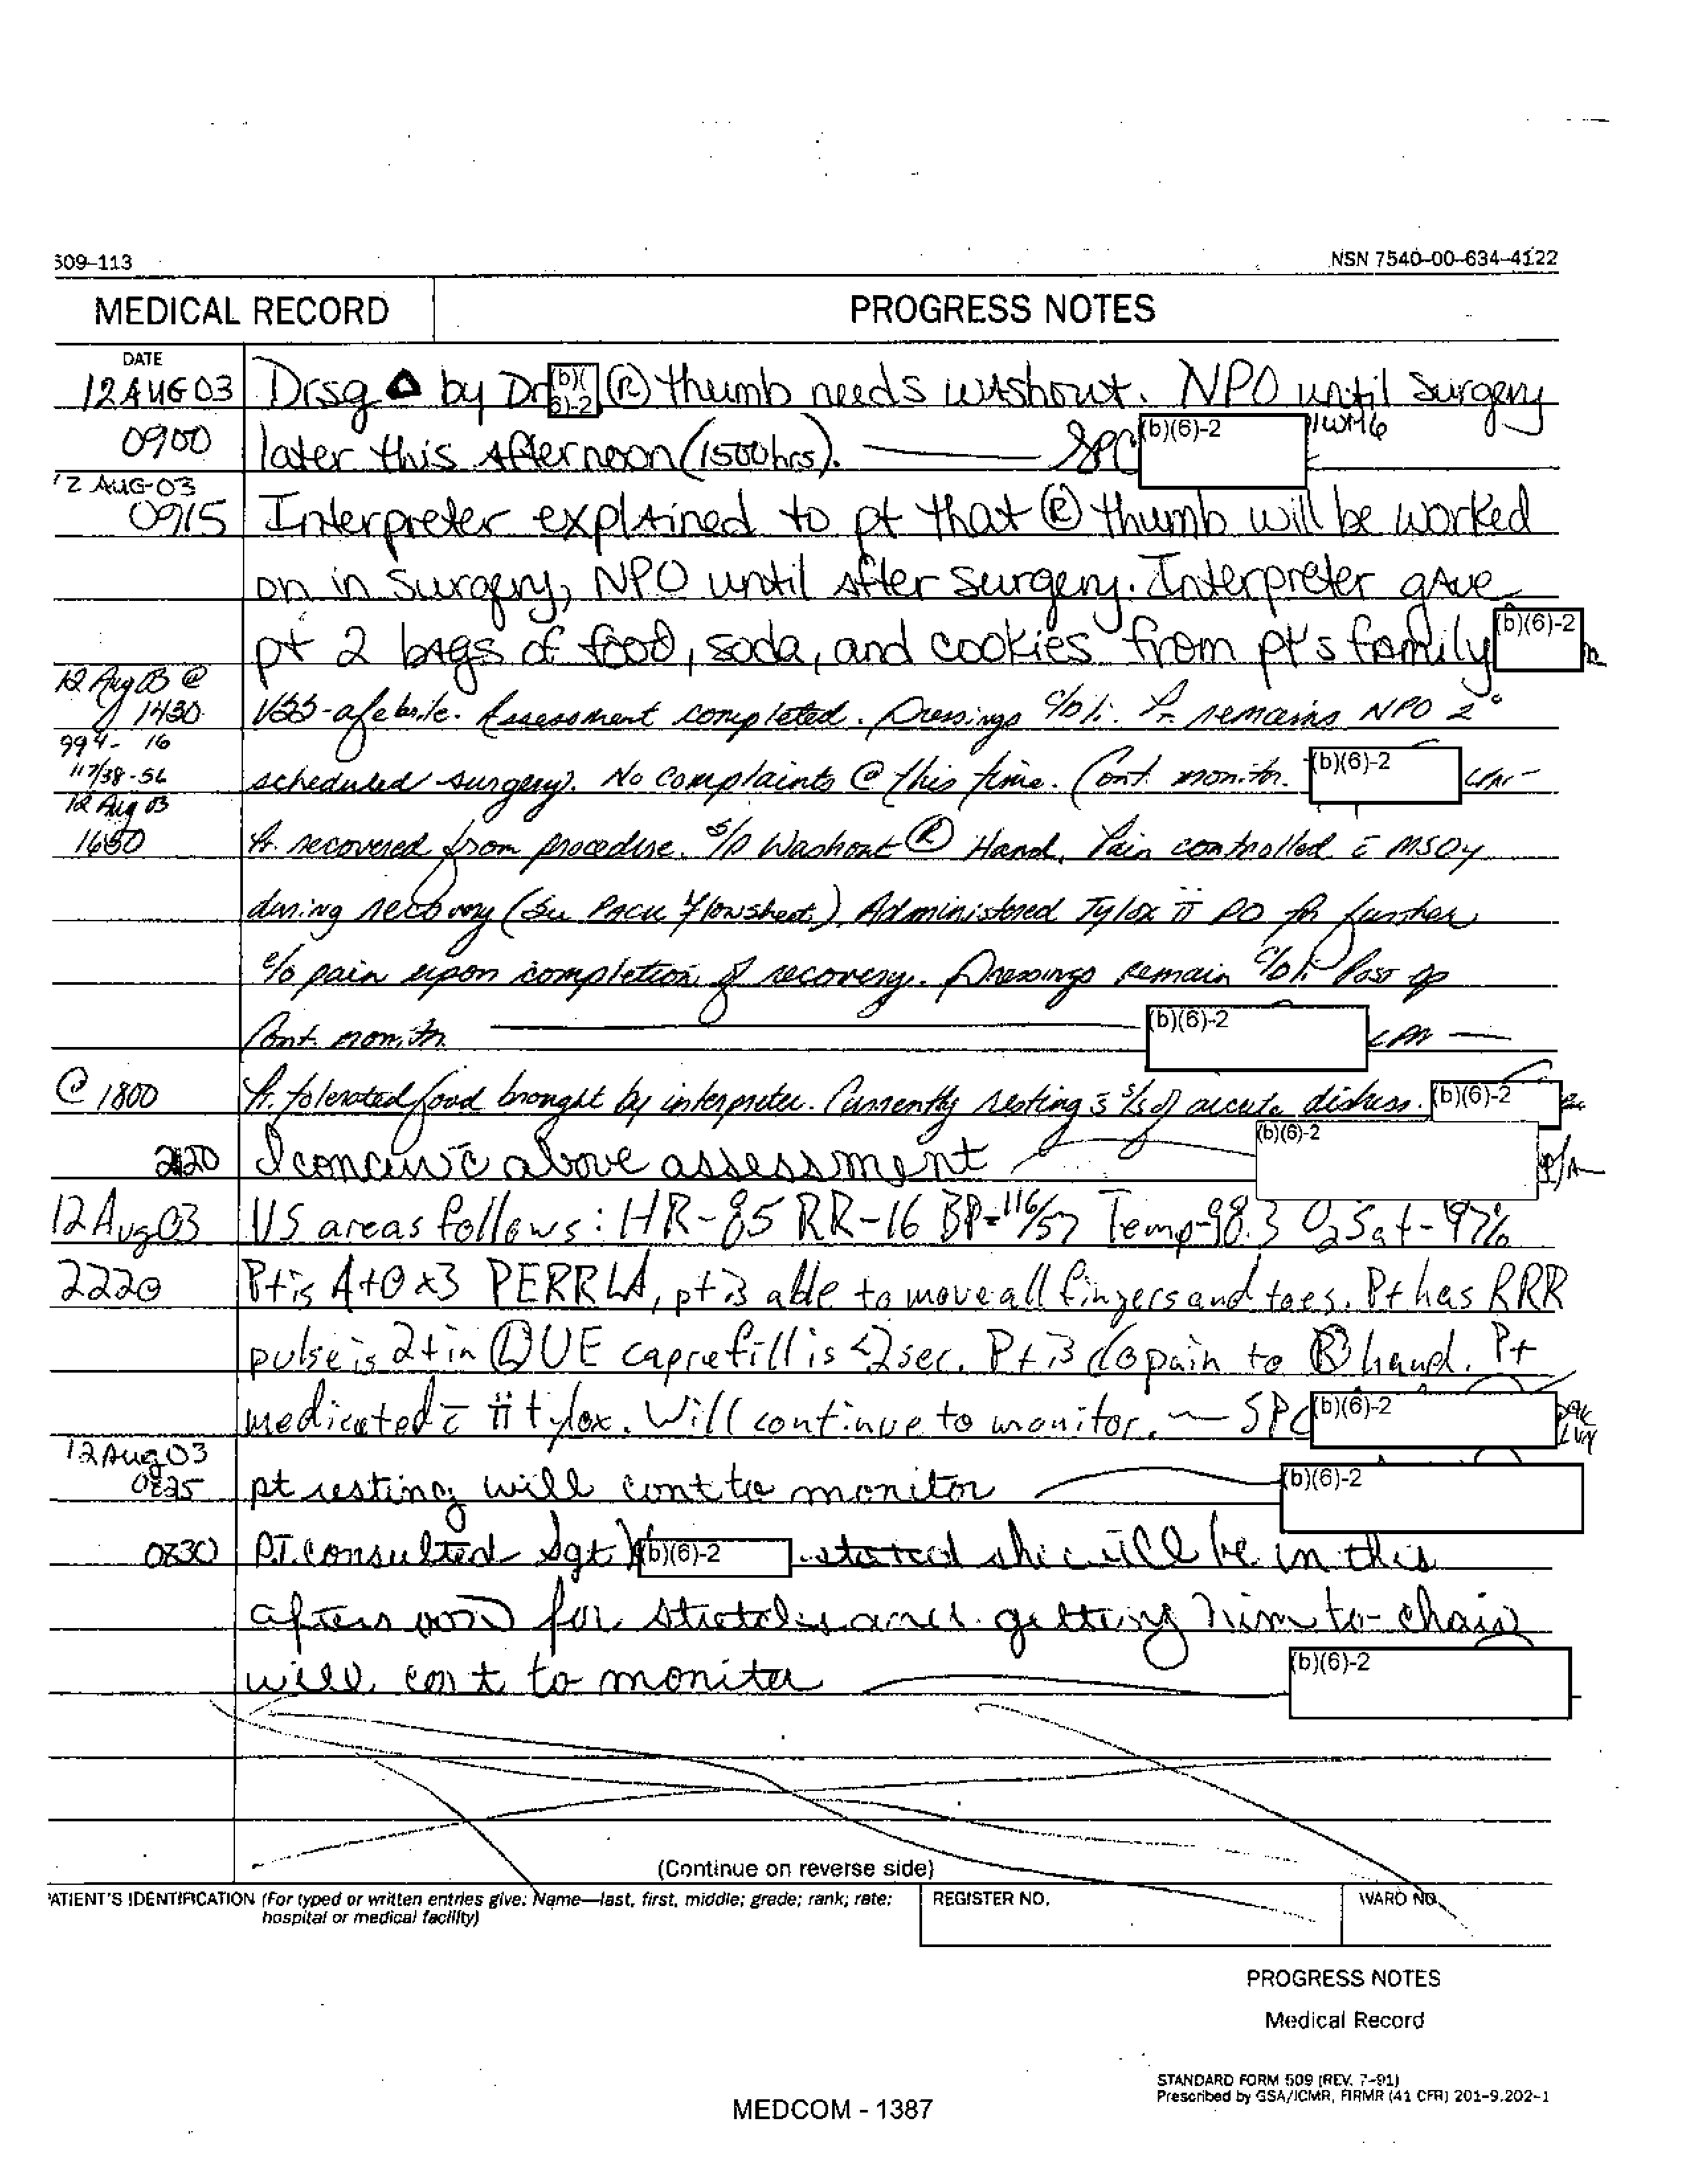 509-113
NSN 7540-00-634-4122
MEDICAL RECORD
PROGRESS NOTES
DATE
12 AUG 03 Drsg Δ by Dr (b)(6)-2 Ⓡ thumb needs washout. NPO until surgery
0900 later this afternoon (1500hrs). SPC (b)(6)-2 91WM6
12 AUG 03
0915 Interpreter explained to pt that Ⓡ thumb will be worked
on in surgery, NPO until after surgery. Interpreter gave
pt 2 bags of food, soda, and cookies from pt's family (b)(6)-2
12 Aug 03 @
1430 VSS-afebrile. Assessment completed. Dressings c/d/i. Pt remains NPO 2°
994- 16
117/38-56 scheduled surgery. No complaints @ this time. Cont. monitor. (b)(6)-2 LPN
12 Aug 03
1650 Pt. recovered from procedure. S/P Washout Ⓡ Hand. Pain controlled c̄ MSO4
during recovery (See PACU flowsheet). Administered Tylox ii PO for further
c/o pain upon completion of recovery. Dressings remain c/d/i Post op
Cont. monitor. (b)(6)-2 LPN
@ 1800 Pt. tolerated food brought by interpreter. Currently resting s̄ s/s of accute distress. (b)(6)-2
2120 I concur c̄ above assessment (b)(6)-2
12 Aug 03 VS are as follows: HR-85 RR-16 BP-116/57 Temp-98.3 O2 Sat-97%
2220 Pt is A+O x3 PERRLA, pt is able to move all fingers and toes. Pt has RRR
pulse is 2+ in Ⓛ UE cap refill is <2 sec. Pt is c/o pain to Ⓡ hand. Pt
medicated c̄ ii tylox. Will continue to monitor. SPC (b)(6)-2
12 Aug 03
0825 pt resting will cont to monitor (b)(6)-2
0830 P.T. consulted Sgt (b)(6)-2 stated she will be in this
afternoon for stretches and getting him to chair
will cont to monitor (b)(6)-2
(Continue on reverse side)
PATIENT'S IDENTIFICATION (For typed or written entries give: Name—last, first, middle; grade; rank; rate;
hospital or medical facility)
REGISTER NO.
WARD NO.
PROGRESS NOTES
Medical Record
STANDARD FORM 509 (REV. 7-91)
Prescribed by GSA/ICMR, FIRMR (41 CFR) 201-9.202-1
MEDCOM - 1387